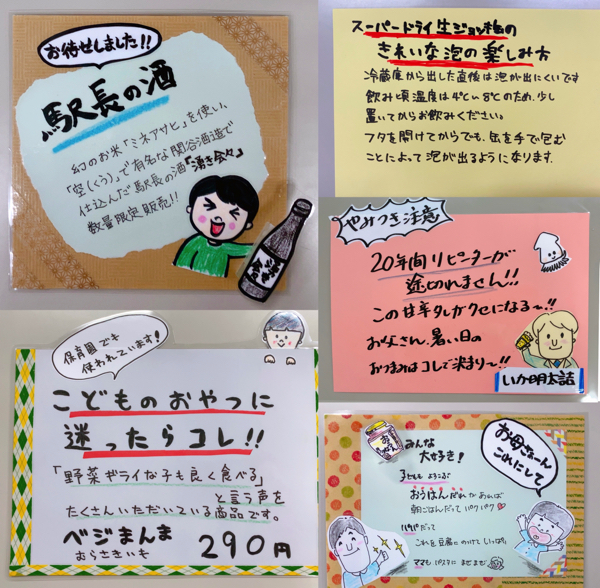 お待せしました!!
駅長の酒
幻のお米「ミネアサヒ」を使い、
「空(くう)」で有名な関谷酒造で
仕込んだ駅長の酒「湧き会々」
数量限定販売!!
スーパードライ生ジョッキ缶の
きれいな泡の楽しみ方
冷蔵庫から出した直後は泡が出にくいです
飲み頃温度は4℃〜8℃のため、少し
置いてからお飲みください。
フタを開けてからでも、缶を手で包む
ことによって泡が出るようになります。
やみつき注意
20年間リピーターが
途切れません!!
この甘辛タレがクセになる〜!!
お父さん、暑い日の
おつまみはコレで決まり〜!!
いか明太詰
保育園でも
使われています!
こどものおやつに
迷ったらコレ!!
「野菜ギライな子も良く食べる」
と言う声を
たくさんいただいている商品です。
ベジまんま
むらさきいも
290円
お母さーん
これにして
みんな
大好き!
子どもも
おうはんだれがあれば
朝ごはんだってパクパク
パパだって
これを豆腐にのけて
ママもパスタにまぜまぜ